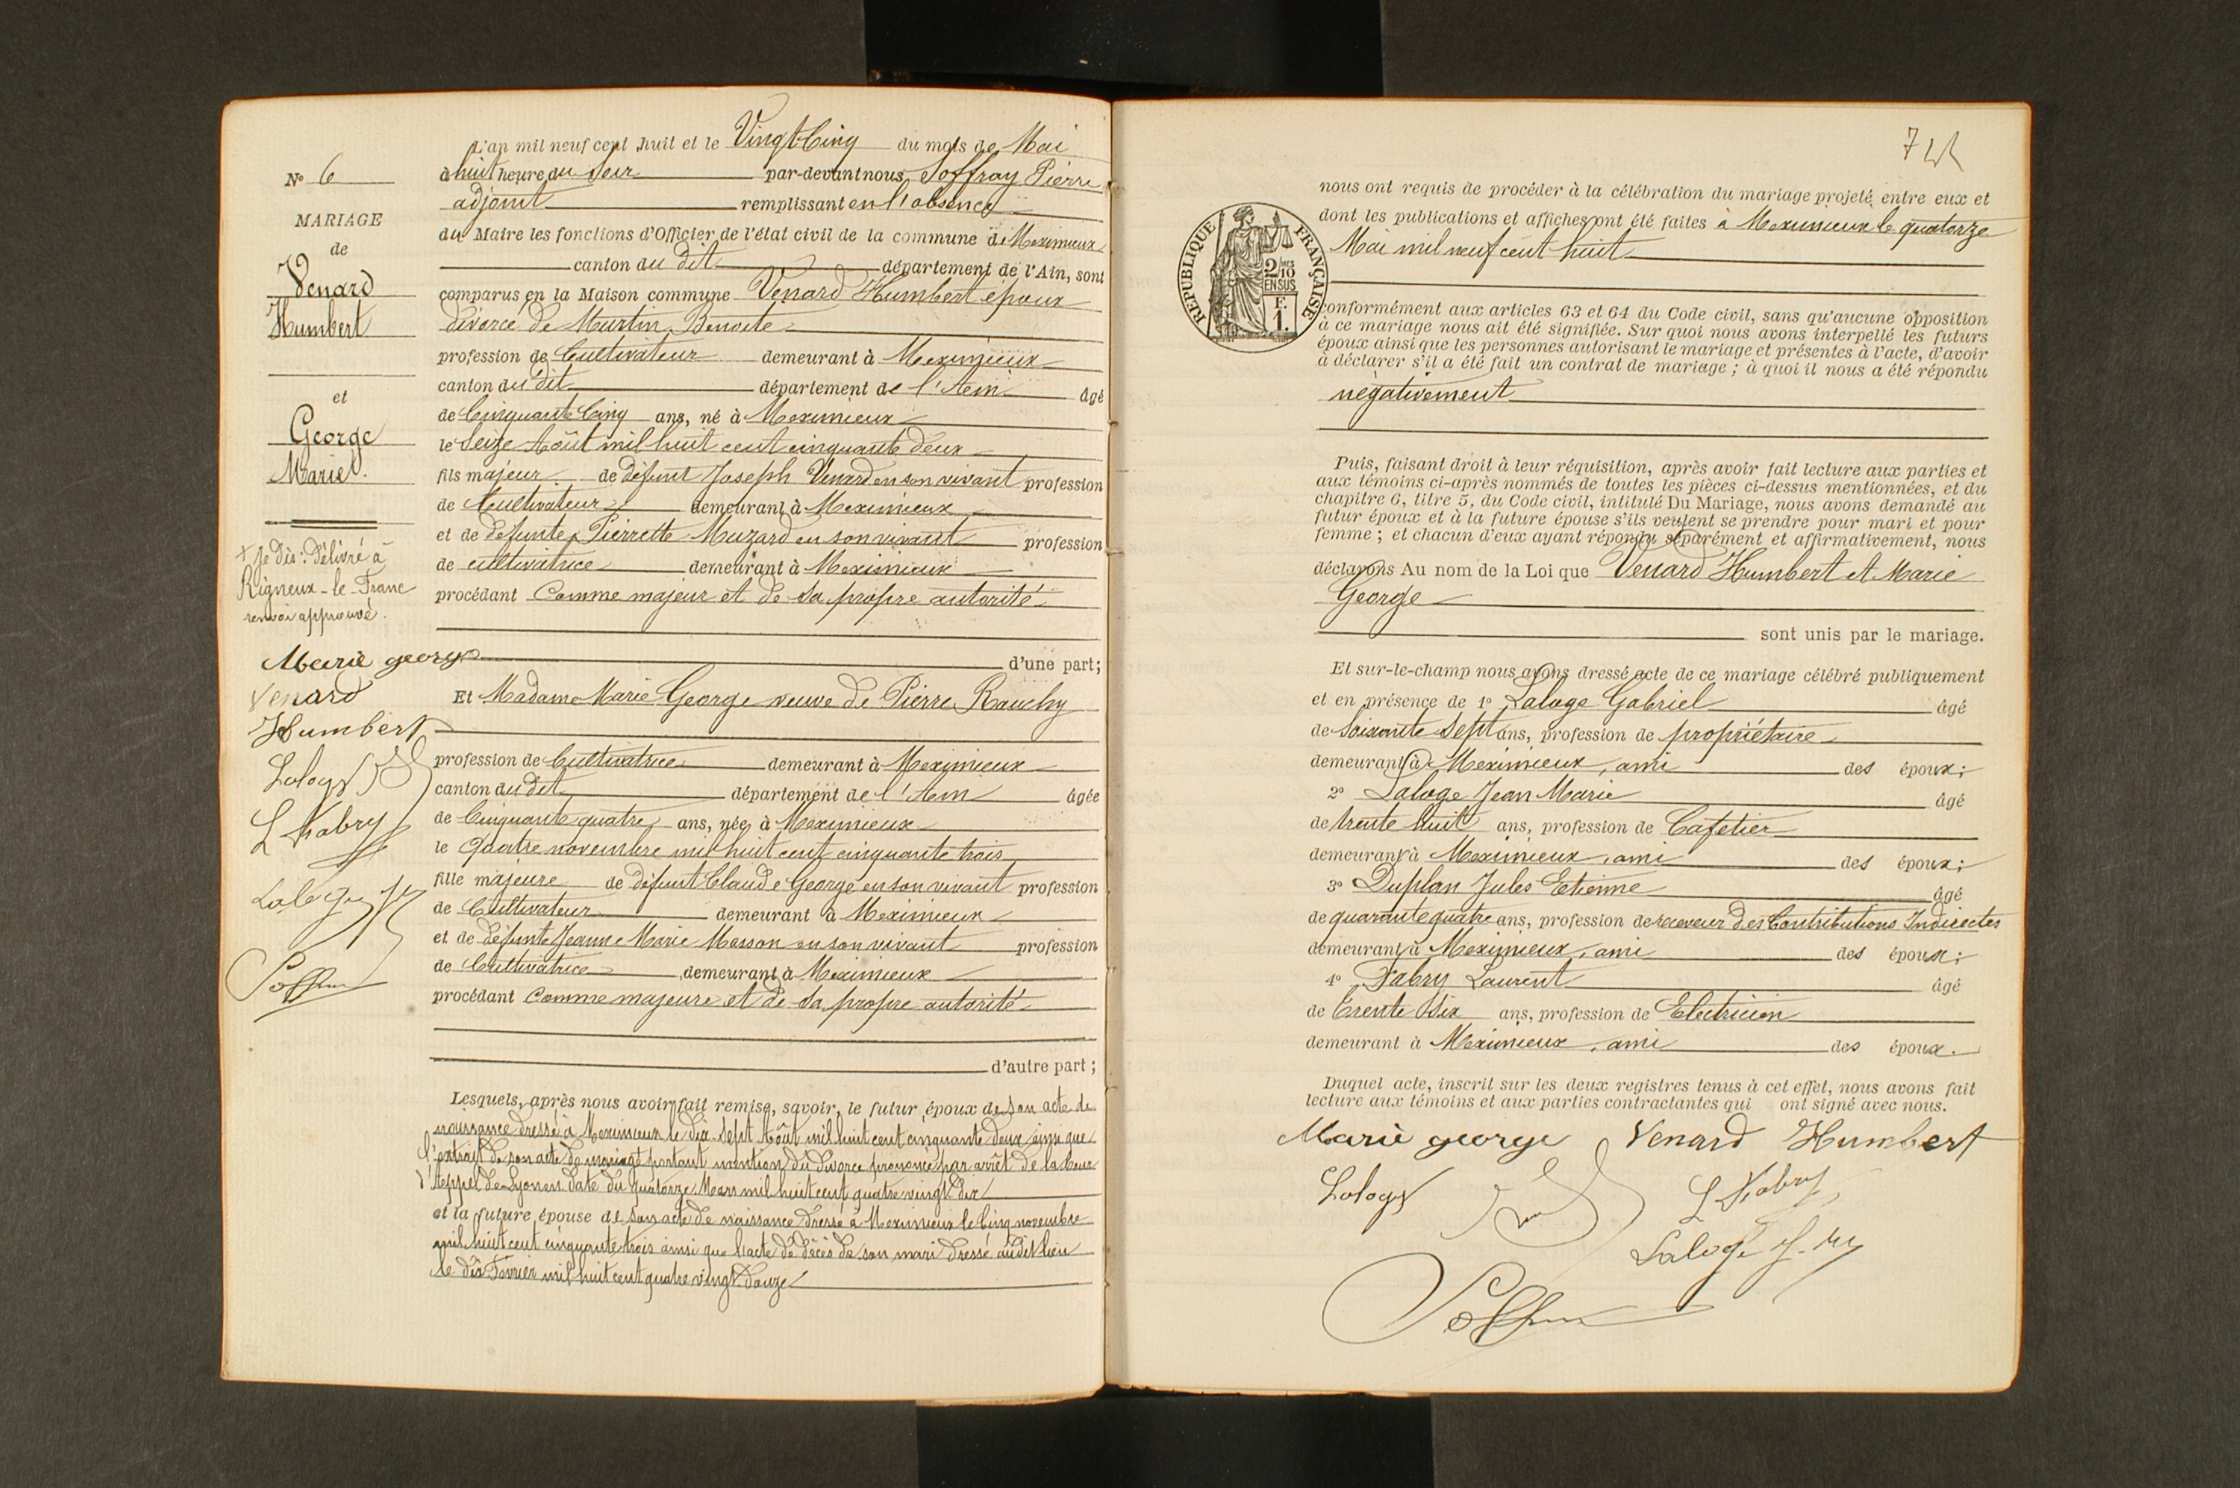 N° 6
MARIAGE
de
Venard
Humbert
et
George
Marie
+ Je dis : délivré à
Rigneux-le-Franc
renvoi approuvé.
Marie george
Venard
Humbert
L Fabry
L'an mil neuf cent huit et le Vingt Cinq du mois de Mai
à huit heure du Soir par-devant nous Soffray Pierre
adjoint remplissant en l'absence
du Maire les fonctions d'Officier de l'état civil de la commune de Meximieux
canton du dit département de l'Ain, sont
comparus en la Maison commune Venard Humbert époux
divorcé de Martin Benoite
profession de Cultivateur demeurant à Meximieux
canton du dit département de l'Ain âgé
de Cinquante Cinq ans, né à Meximieux
le Seize Août mil huit cent cinquante deux
fils majeur de défunt Joseph Venard en son vivant profession
de Cultivateur demeurant à Meximieux
et de défunte Pierrette Muzard en son vivant profession
de cultivatrice demeurant à Meximieux
procédant Comme majeur et de sa propre autorité
d'une part;
Et Madame Marie George veuve de Pierre Rauchy
profession de Cultivatrice demeurant à Meximieux
canton du dit département de l'Ain âgée
de Cinquante quatre ans, née à Meximieux
le Quatre novembre mil huit cent cinquante trois
fille majeure de défunt Claude George en son vivant profession
de Cultivateur demeurant à Meximieux
et de défunte Jeanne Marie Masson en son vivant profession
de Cultivatrice demeurant à Meximieux
procédant Comme majeure et de sa propre autorité
d'autre part;
Lesquels, après nous avoir fait remise, savoir, le futur époux de son acte de
naissance dressé à Meximieux le dix sept Août mil huit cent cinquante deux ainsi que
l'extrait de son acte de mariage portant mention du divorce prononcé par arrêt de la Cour
d'Appel de Lyon en date du quatorze Mars mil huit cent quatre vingt dix
et la future épouse de son acte de naissance dressé à Meximieux le Cinq novembre
mil huit cent cinquante trois ainsi que l'acte de décès de son mari dressé audit lieu
le dix Février mil huit cent quatre vingt douze
7
nous ont requis de procéder à la célébration du mariage projeté entre eux et
dont les publications et affiches ont été faites à Meximieux le quatorze
Mai mil neuf cent huit
RÉPUBLIQUE FRANÇAISE
2/10 EN SUS
F. 1.
conformément aux articles 63 et 64 du Code civil, sans qu'aucune opposition
à ce mariage nous ait été signifiée. Sur quoi nous avons interpellé les futurs
époux ainsi que les personnes autorisant le mariage et présentes à l'acte, d'avoir
à déclarer s'il a été fait un contrat de mariage ; à quoi il nous a été répondu
négativement
Puis, faisant droit à leur réquisition, après avoir fait lecture aux parties et
aux témoins ci-après nommés de toutes les pièces ci-dessus mentionnées, et du
chapitre 6, titre 5, du Code civil, intitulé Du Mariage, nous avons demandé au
futur époux et à la future épouse s'ils veulent se prendre pour mari et pour
femme ; et chacun d'eux ayant répondu séparément et affirmativement, nous
déclarons Au nom de la Loi que Venard Humbert et Marie
George
sont unis par le mariage.
Et sur-le-champ nous avons dressé acte de ce mariage célébré publiquement
et en présence de 1° Laloge Gabriel âgé
de Soixante Sept ans, profession de propriétaire
demeurant à Meximieux, ami des époux;
2° Laloge Jean Marie âgé
de trente huit ans, profession de Cafetier
demeurant à Meximieux, ami des époux;
3° Duplan Jules Etienne âgé
de quarante quatre ans, profession de receveur des Contributions Indirectes
demeurant à Meximieux, ami des époux;
4° Fabry Laurent âgé
de Trente Six ans, profession de Electricien
demeurant à Meximieux, ami des époux.
Duquel acte, inscrit sur les deux registres tenus à cet effet, nous avons fait
lecture aux témoins et aux parties contractantes qui ont signé avec nous.
Marie george Venard Humbert
L Fabry
Laloge J. M